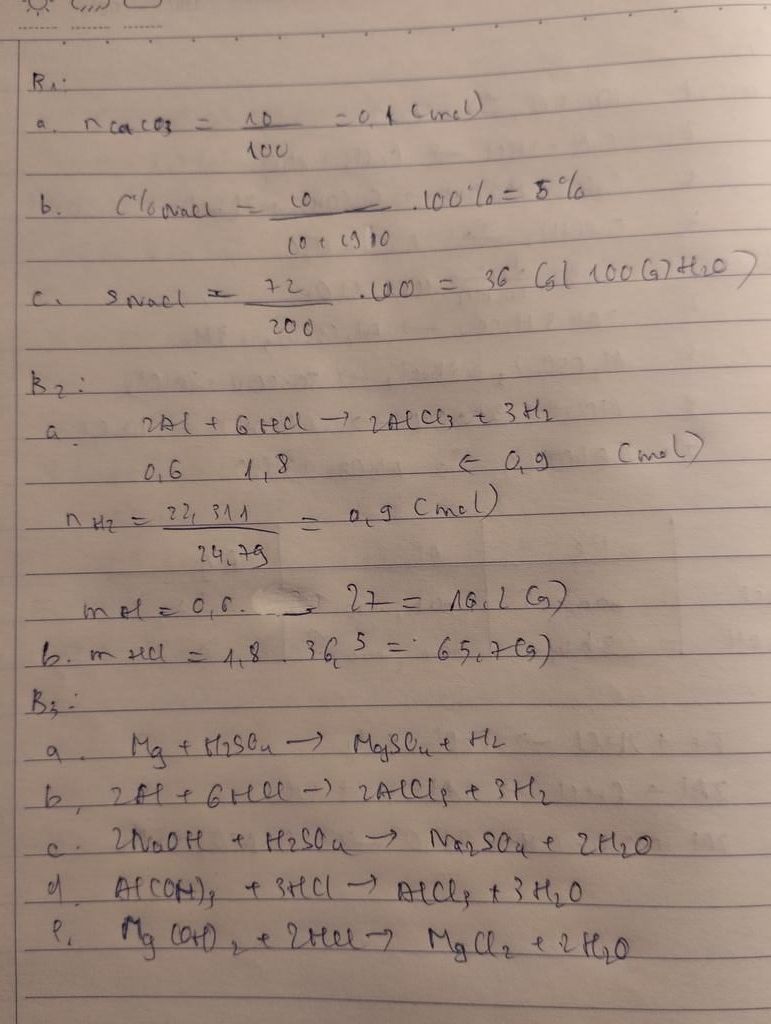 B1:
a. nCaCO3 = 10/100 = 0,1 (mol)
b. C%NaCl = 10/(10 + 190) .100% = 5%
c. SNaCl = 72/200 .100 = 36 (g/100(g) H2O)
B2:
a. 2Al + 6HCl → 2AlCl3 + 3H2
0,6 1,8 ← 0,9 (mol)
nH2 = 22,311/24,79 = 0,9 (mol)
mAl = 0,6. 27 = 16,2 (g)
b. mHCl = 1,8 . 36,5 = 65,7 (g)
B3:
a. Mg + H2SO4 → MgSO4 + H2
b, 2Al + 6HCl → 2AlCl3 + 3H2
c. 2NaOH + H2SO4 → Na2SO4 + 2H2O
d. Al(OH)3 + 3HCl → AlCl3 + 3H2O
e. Mg(OH)2 + 2HCl → MgCl2 + 2H2O